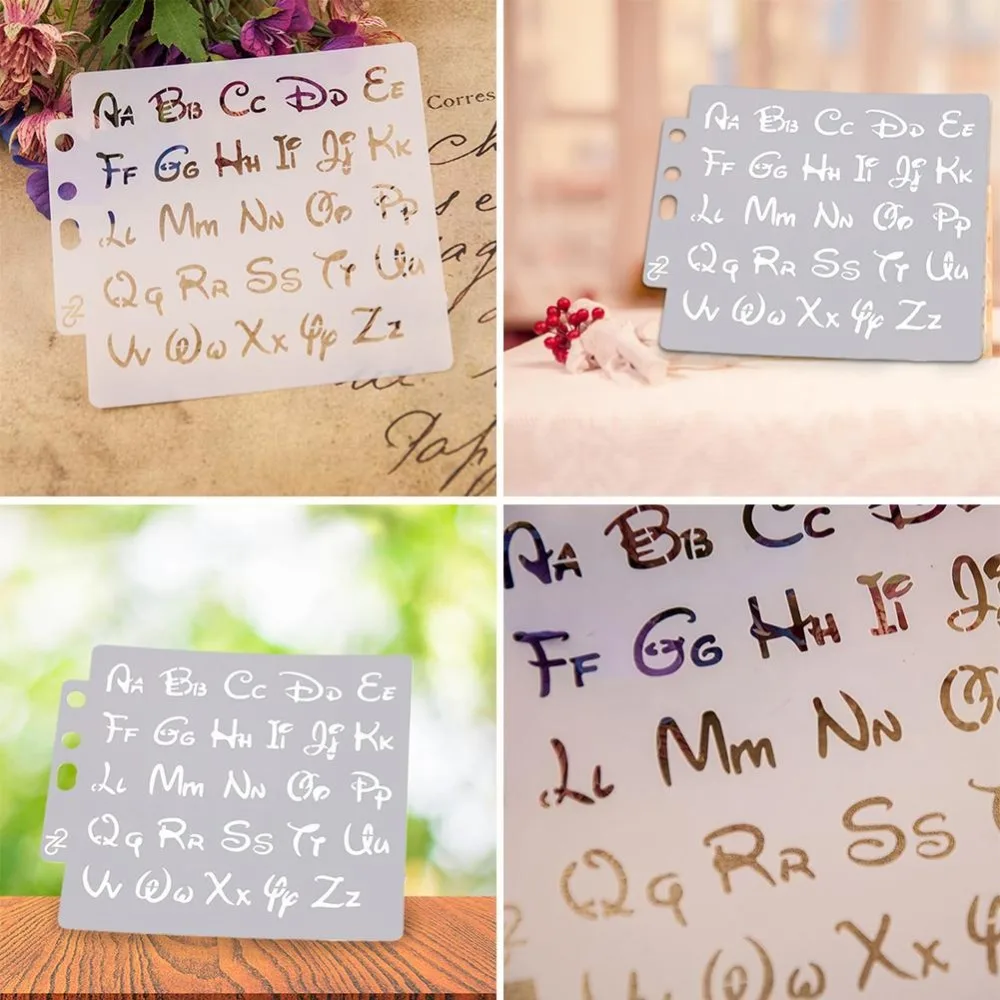 Aa Bb Cc Dd Ee
Ff Gg Hh Ii Jj Kk
Ll Mm Nn Oo Pp
Qq Rr Ss Tt Uu
Vv Ww Xx Yy Zz
Corres
Pap
Aa Bb Cc Dd Ee
Ff Gg Hh Ii Jj Kk
Ll Mm Nn Oo Pp
Qq Rr Ss Tt Uu
Vv Ww Xx Yy Zz
Aa Bb Cc Dd Ee
Ff Gg Hh Ii Jj Kk
Ll Mm Nn Oo Pp
Qq Rr Ss Tt Uu
Vv Ww Xx Yy Zz
Aa Bb Cc D
Ff Gg Hh Ii Jj
Ll Mm Nn O
Qq Rr Ss
Ww Xx